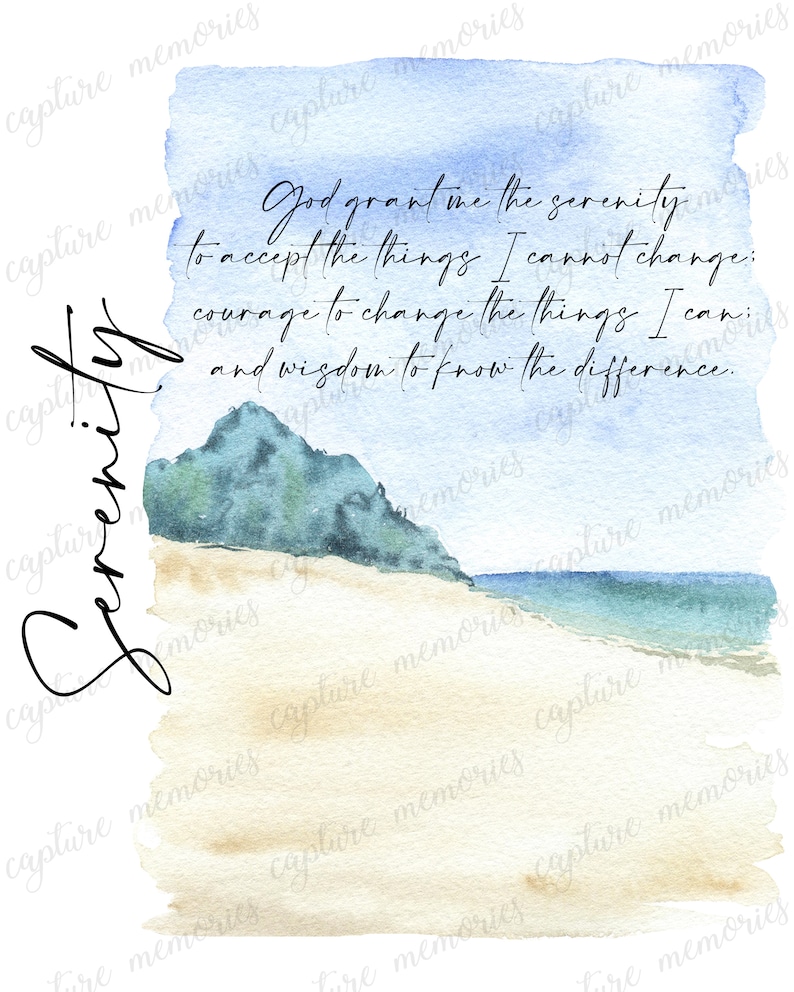 God grant me the serenity
to accept the things I cannot change;
courage to change the things I can;
and wisdom to know the difference.
Serenity
capture memories